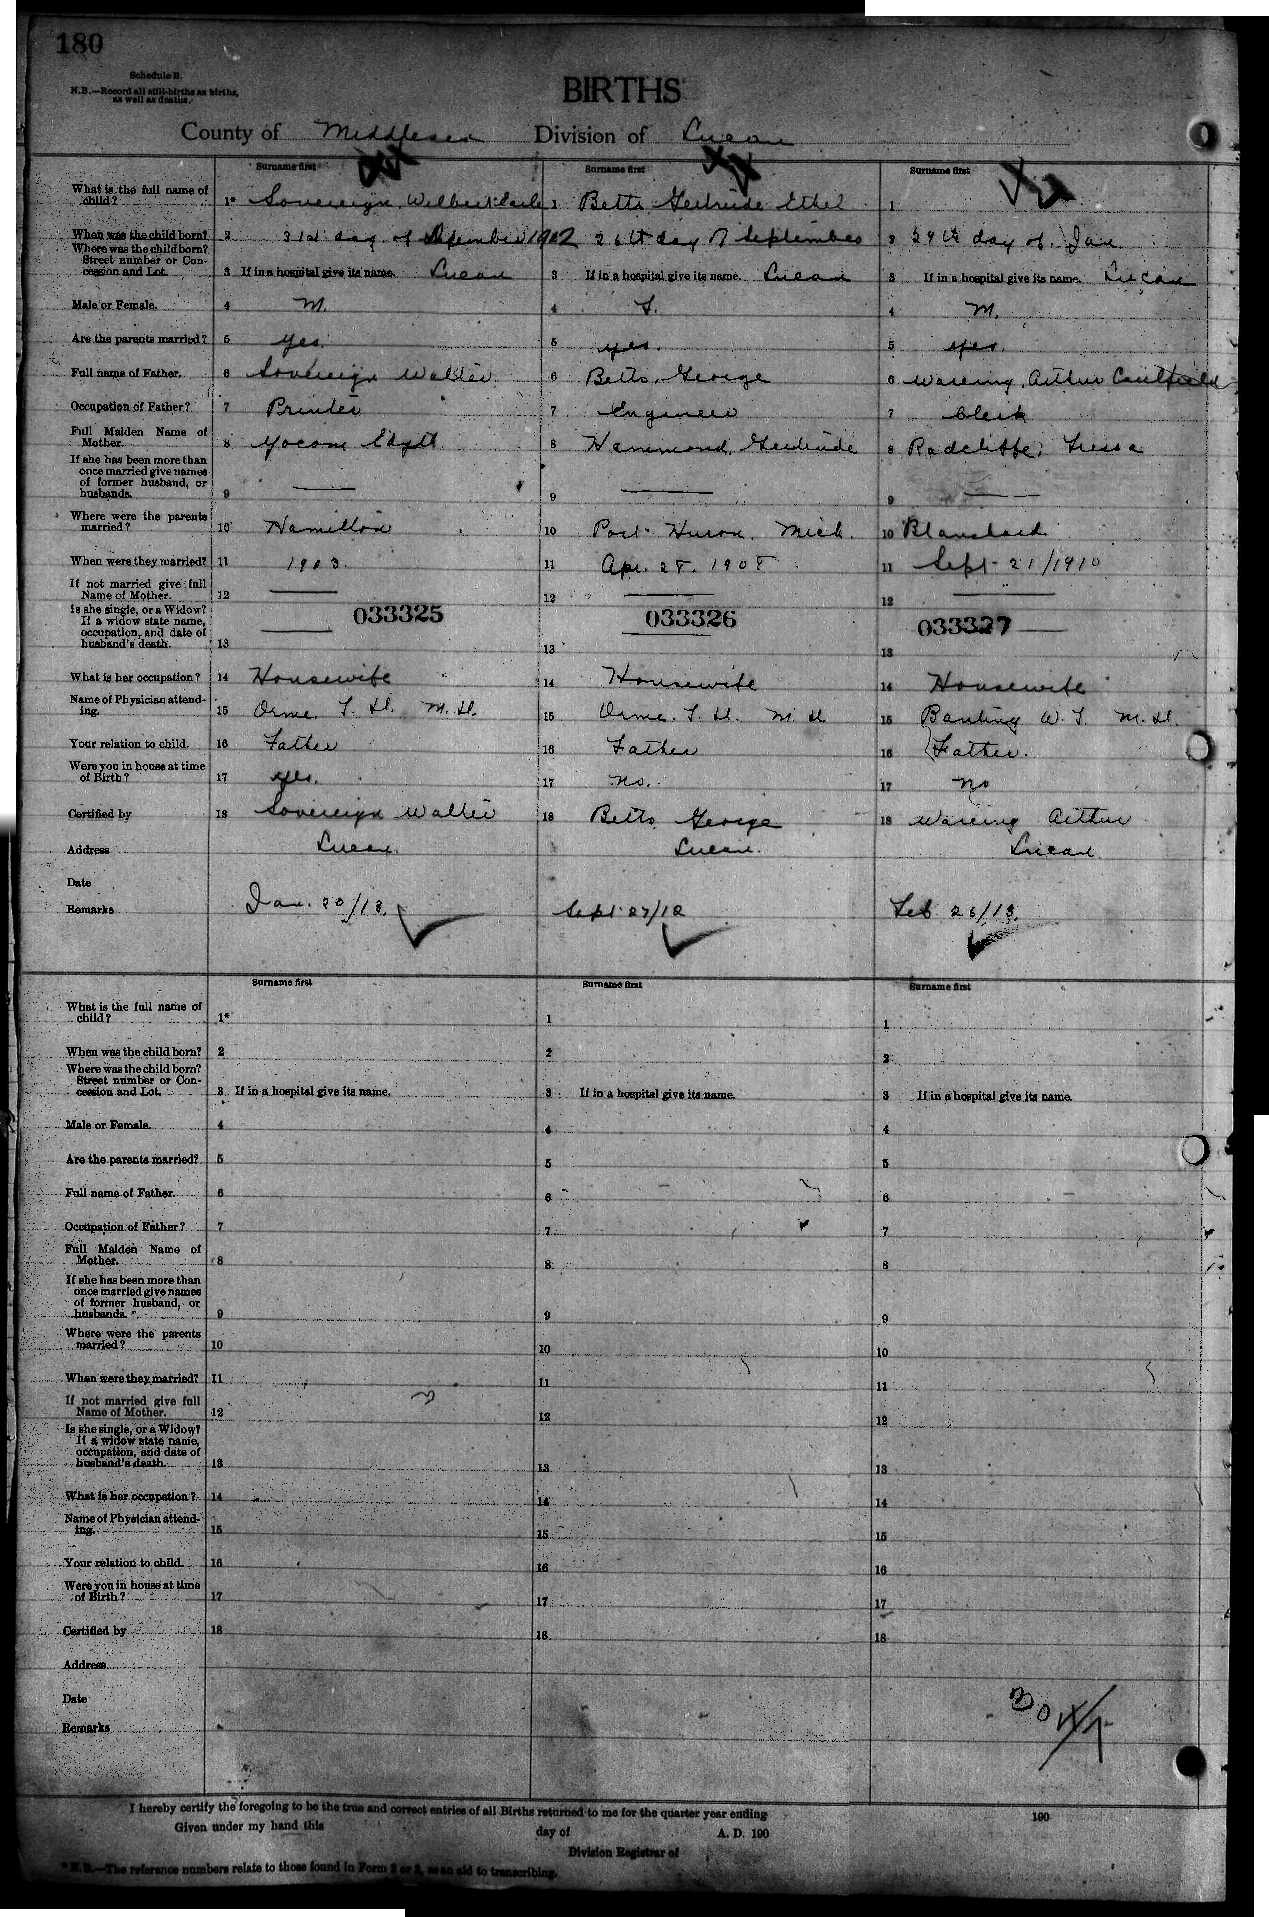 180
Schedule B.
N.B.—Record all still-births as births,
as well as deaths.
BIRTHS
County of Middlesex Division of Lucan
Surname first Surname first Surname first
What is the full name of
child? 1* Sovereign, Wilbert 1 Betts Gertrude Ethel 1
When was the child born? 2 31st day of December 1912 26th day of September 2 29th day of Jan
Where was the child born?
Street number or Con-
cession and Lot. 3 If in a hospital give its name. Lucan 3 If in a hospital give its name. Lucan 3 If in a hospital give its name. Lucan
Male or Female. 4 M. 4 F. 4 M.
Are the parents married? 5 yes. 5 yes. 5 yes.
Full name of Father. 6 Sovereign Walter 6 Betts, George 6 Wareing, Arthur Caulfield
Occupation of Father? 7 Printer 7 Engineer 7 Clerk
Full Maiden Name of
Mother. 8 Yocom Edyth 8 Hammond, Gertrude 8 Radcliffe, Tressa
If she has been more than
once married give names
of former husband, or
husbands. 9 — 9 — 9 —
Where were the parents
married? 10 Hamilton 10 Port Huron, Mich. 10 Blanshard
When were they married? 11 1903. 11 Apr. 28, 1908 11 Sept 21/1910
If not married give full
Name of Mother. 12 — 12 — 12 —
Is she single, or a Widow?
If a widow state name,
occupation, and date of
husband's death. 13 — 033325 13 — 033326 13 — 033327
What is her occupation? 14 Housewife 14 Housewife 14 Housewife
Name of Physician attend-
ing. 15 Orme. T. H. M.D. 15 Orme. T. H. M D 15 Banting W. T. M.D.
Your relation to child. 16 Father 16 Father 16 Father.
Were you in house at time
of Birth? 17 yes. 17 no. 17 no
Certified by 18 Sovereign Walter 18 Betts George 18 Wareing Arthur
Address Lucan. Lucan. Lucan
Date
Remarks Jan. 20/13. Sept 27/12 Feb 26/13.
Surname first Surname first Surname first
What is the full name of
child? 1* 1 1
When was the child born? 2 2 2
Where was the child born?
Street number or Con-
cession and Lot. 3 If in a hospital give its name. 3 If in a hospital give its name. 3 If in a hospital give its name.
Male or Female. 4 4 4
Are the parents married? 5 5 5
Full name of Father. 6 6 6
Occupation of Father? 7 7 7
Full Maiden Name of
Mother. 8 8 8
If she has been more than
once married give names
of former husband, or
husbands. 9 9 9
Where were the parents
married? 10 10 10
When were they married? 11 11 11
If not married give full
Name of Mother. 12 12 12
Is she single, or a Widow?
If a widow state name,
occupation, and date of
husband's death. 13 13 13
What is her occupation? 14 14 14
Name of Physician attend-
ing. 15 15 15
Your relation to child. 16 16 16
Were you in house at time
of Birth? 17 17 17
Certified by 18 18 18
Address
Date
Remarks
I hereby certify the foregoing to be the true and correct entries of all Births returned to me for the quarter year ending 190
Given under my hand this day of A. D. 190
Division Registrar of
*N.B.—The reference numbers relate to those found in Form 2 or 3, as an aid to transcribing.